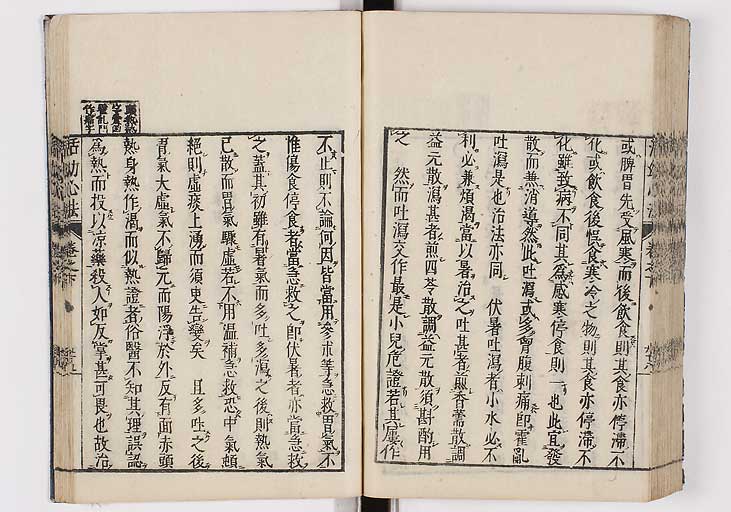 或脾胃先受風寒而後飲食則其食亦停滯不
化或飲食後悞食寒冷之物則其食亦停滯不
化雖致病不同其爲感寒停食則一也此宜發
散而兼消導然此吐瀉或多胷腹刺痛即霍亂
吐瀉是也治法亦同 伏暑吐瀉者小水必不
利必兼煩渴當以暑治之吐甚者煎香薷散調
益元散瀉甚者煎四苓散調益元散須斟酌用
之 然而吐瀉交作最是小兒危證若其屢作
不止則不論何因皆當用參朮等急救胃氣不
惟傷食停食者當急救之即伏暑者亦當急救
之蓋其初雖有暑氣而多吐多瀉之後則熱氣
已散而胃氣驟虛若不用溫補急救恐中氣頓
絕則虛痰上湧而須臾告變矣 且多吐之後
胃氣大虛氣不歸元而陽浮於外反有面赤頭
熱身熱作渴而似熱證者俗醫不知其理誤認
爲熱而投以涼藥殺人如反掌甚可畏也故治
活幼心法 卷之下